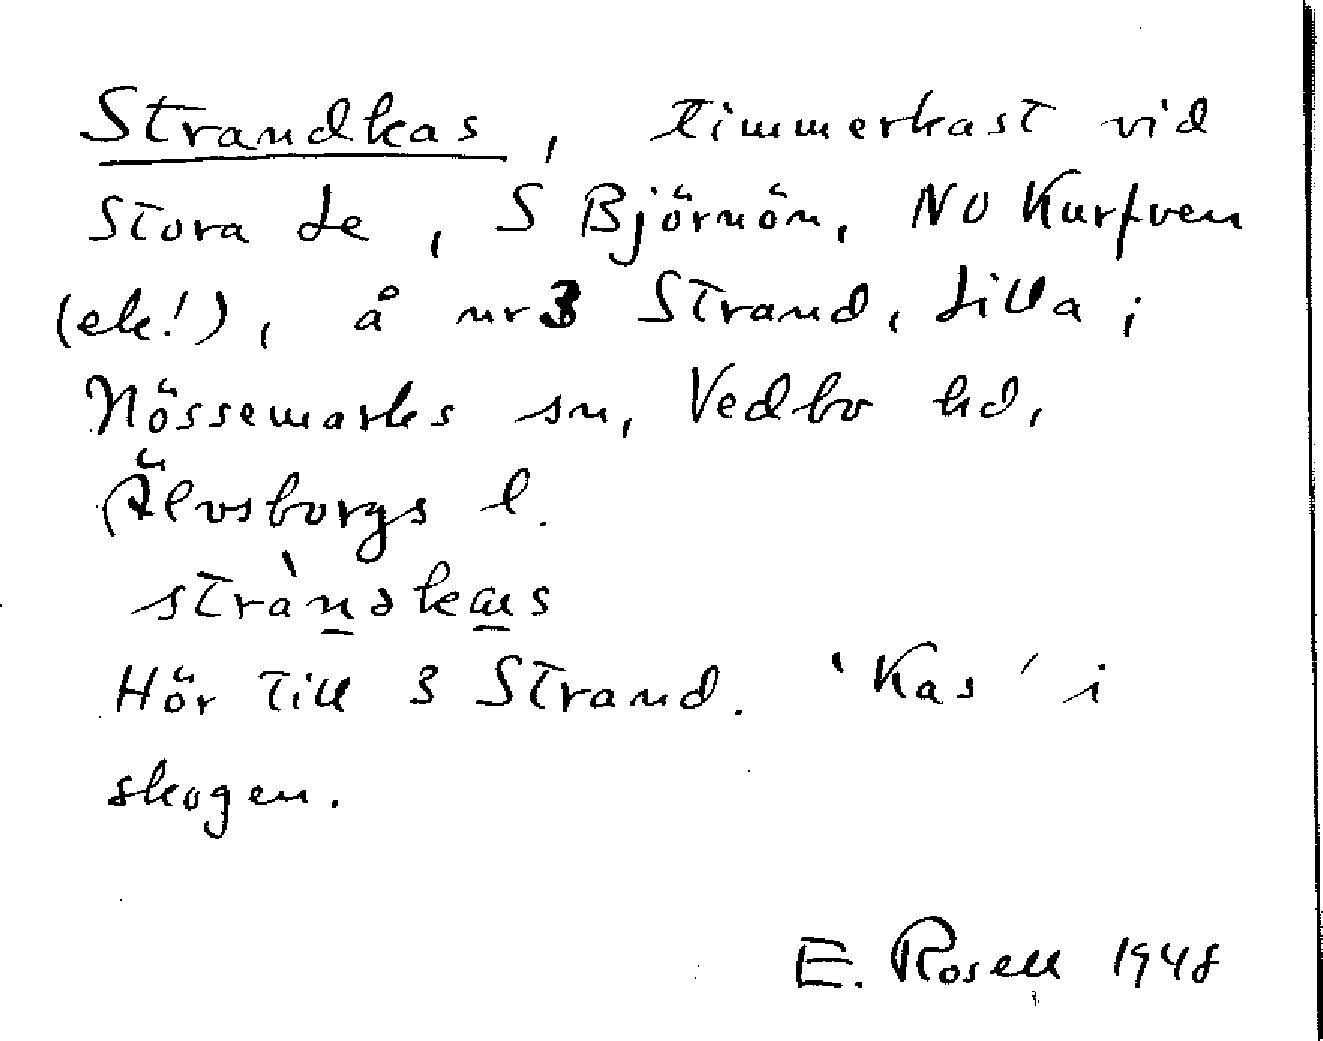 Strandkas, timmerkast vid
Stora Le, S Björnön, NO Kurfven
(ek!), å nr 3 Strand, Lilla i
Nössemarks sn, Vedbo hd,
Älvsborgs l.
stràndkas
Hör till 3 Strand. 'Kas' i
skogen.
E. Rosell 1948